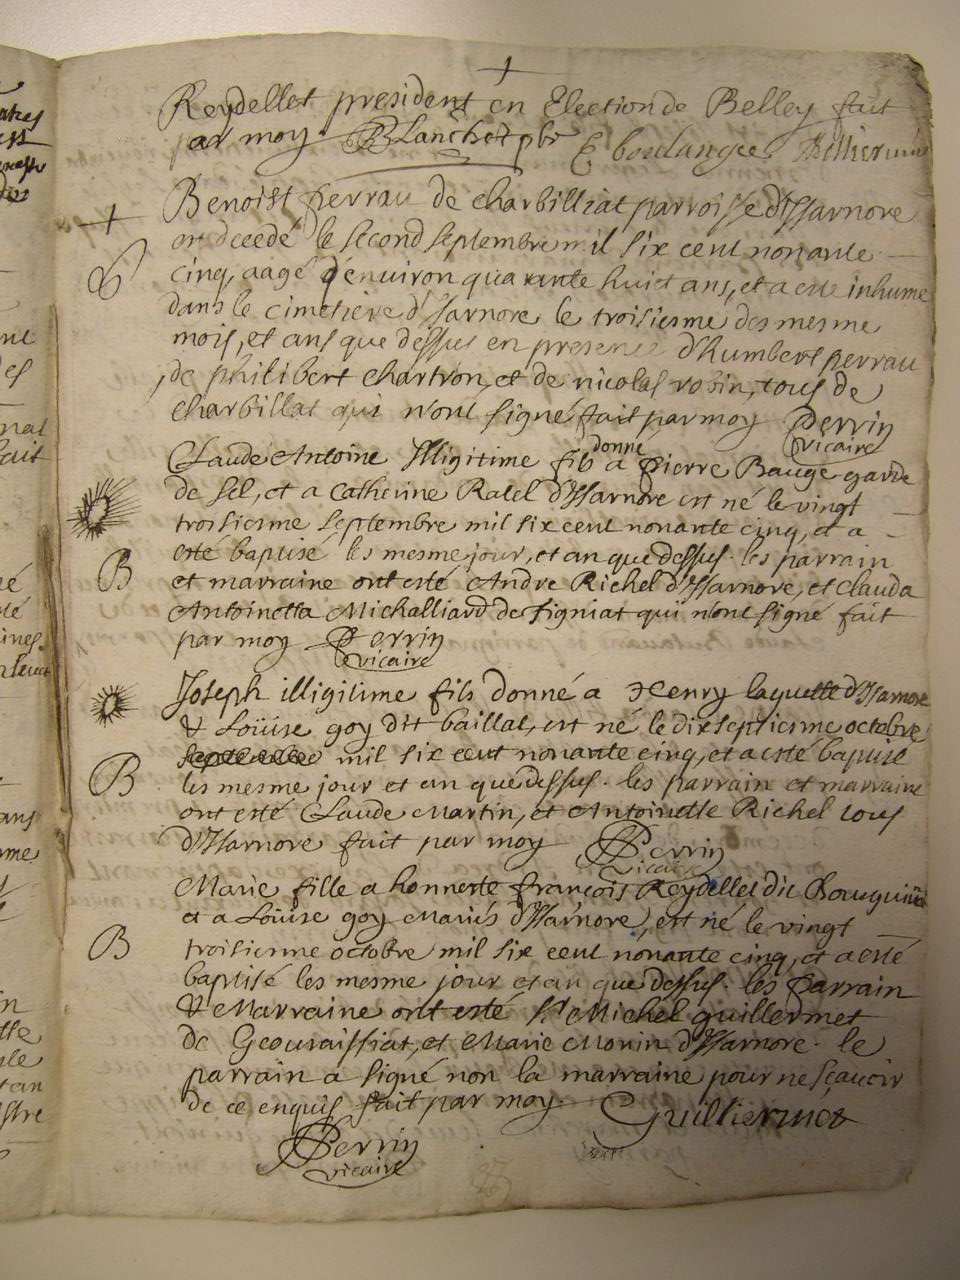 Reydellet president en Election de Belley fait
par moy Blanchet pbr E boulangee
Benoist perrau de charbilliat parroisse d'Isarnore
est decedé le second septembre mil six cent nonante
cinq, aagé d'environ quarante huict ans, et a esté inhumé
dans le cimetiere d'Isarnore le troisiesme des mesme
mois, et ans que dessus en presence d'humbert perrau
de philibert chartron, et de nicolas robin, tous de
charbillat qui n'ont signé fait par moy Perrin
vicaire
Claude Antoine Illigitime fils donné a Pierre Bauge garde
de sel, et a Catherine Ratel d'Isarnore est né le vingt
troisiesme septembre mil six cent nonante cinq, et a
esté baptisé les mesme jour, et an que dessus. les parrain
B et marraine ont esté Andre Richel d'Isarnore, et Clauda
Antoinetta Michalliard de Signiat qui n'ont signé fait
par moy Perrin
vicaire
Joseph illigitime fils donné a Henry laguette d'Isarnore
& Loüise goy dit baillat, est né le dixseptiesme octobre
mil six cent nonante cinq, et a esté baptisé
B les mesme jour et an que dessus. les parrain et marraine
ont esté Claude Martin, et Antoinette Richel tous
d'Isarnore fait par moy Perrin
vicaire
Marie fille a honneste françois Reydellet dit
et a Loüise goy Mariés d'Isarnore, est né le vingt
B troisiesme octobre mil six cent nonante cinq, et a esté
baptisé les mesme jour et an que dessus. les Parrain
& Marraine ont esté Sr Michel guillermet
de Geouraissiat, et Marie Monin d'Isarnore. le
parrain a signé non la marraine pour ne sçavoir
de ce enquis fait par moy. Guilliermet
Perrin
vicaire